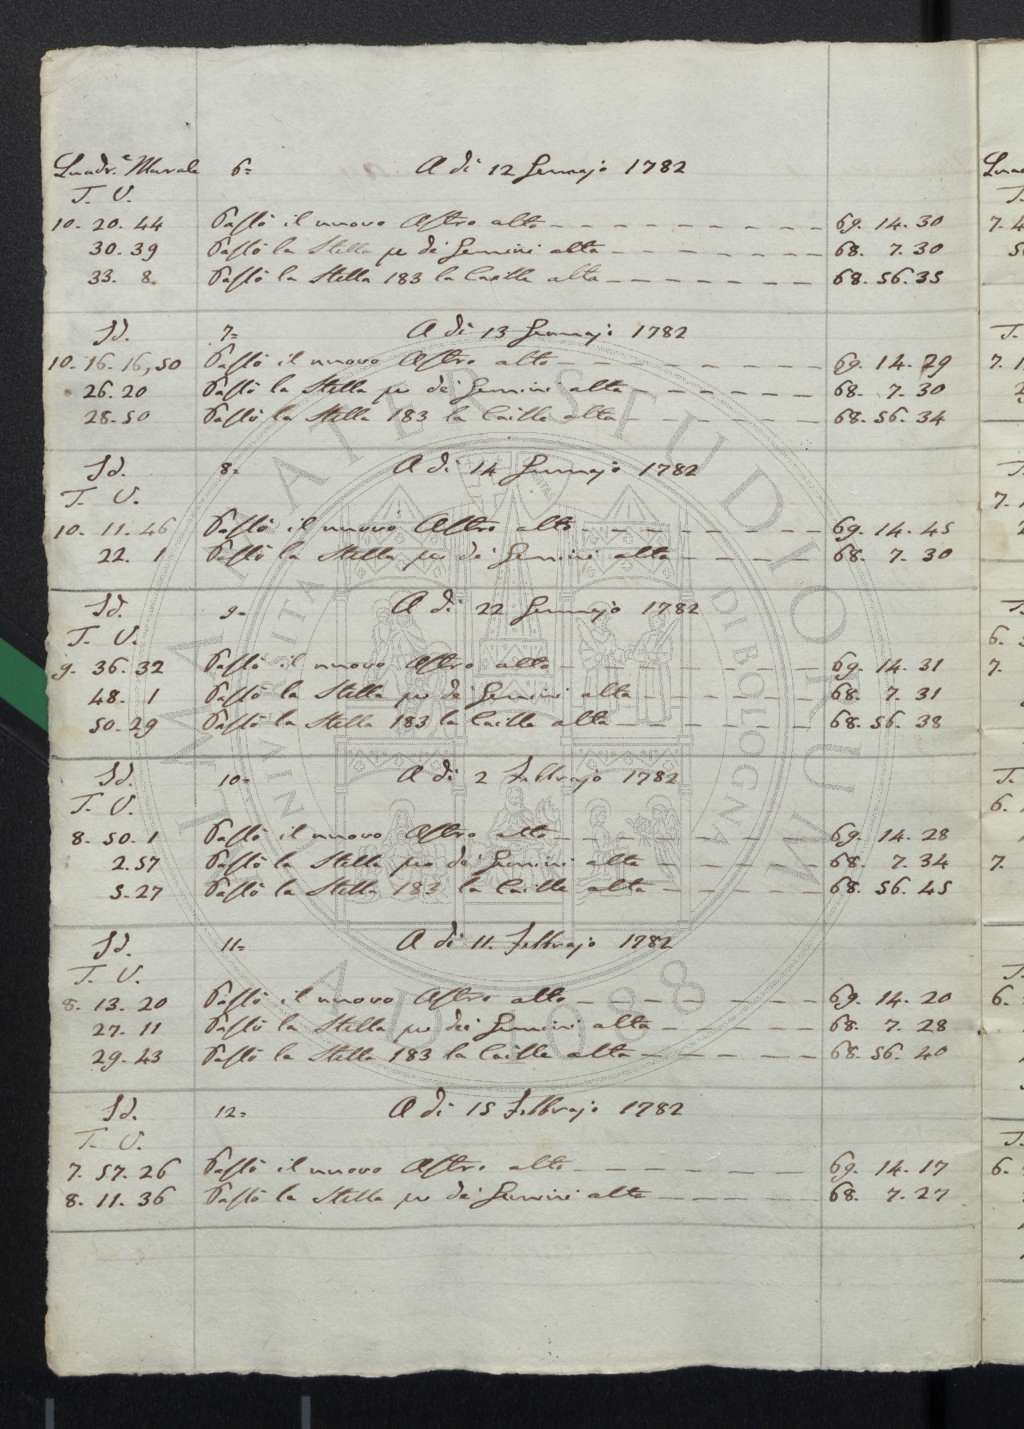 Quadr.e Murale 6= A di 12 Gennajo 1782
T. V.
10. 20. 44 Passò il nuovo Astro alto 69. 14. 30
30. 39 Passò la Stella μ de Gemini alta 68. 7. 30
33. 8. Passò la Stella 183 la Caille alta 68. 56. 35
Id. 7= A di 13 Gennajo 1782
10. 16. 16,50 Passò il nuovo Astro alto 69. 14. 29
26. 20 Passò la Stella μ dei Gemini alta 68. 7. 30
28. 50 Passò la Stella 183 la Caille alta 68. 56. 34
Id. 8= A di 14 Gennajo 1782
T. V.
10. 11. 46 Passò il nuovo Astro alto 69. 14. 45
22. 1 Passò la Stella μ de Gemini alta 68. 7. 30
Id. 9= A di 22 Gennajo 1782
T. V.
9. 36. 32 Passò il nuovo Astro alto 69. 14. 31
48. 1 Passò la Stella μ de Gemini alta 68. 7. 31
50. 29 Passò la Stella 183 la Caille alta 68. 56. 38
Id. 10= A di 2 Febbrajo 1782
T. V.
8. 50. 1 Passò il nuovo Astro alto 69. 14. 28
2. 57 Passò la Stella μ dei Gemini alta 68. 7. 34
5. 27 Passò la Stella 183 la Caille alta 68. 56. 45
Id. 11= A di 11. Febbrajo 1782
T. V.
8. 13. 20 Passò il nuovo Astro alto 69. 14. 20
27. 11 Passò la Stella μ dei Gemini alta 68. 7. 28
29. 43 Passò la Stella 183 la Caille alta 68. 56. 40
Id. 12= A di 15 Febbrajo 1782
T. V.
7. 57. 26 Passò il nuovo Astro alto 69. 14. 17
8. 11. 36 Passò la Stella μ dei Gemini alta 68. 7. 27
ALMA MATER STUDIORUM
UNIVERSITA DI BOLOGNA
A.D. 1088